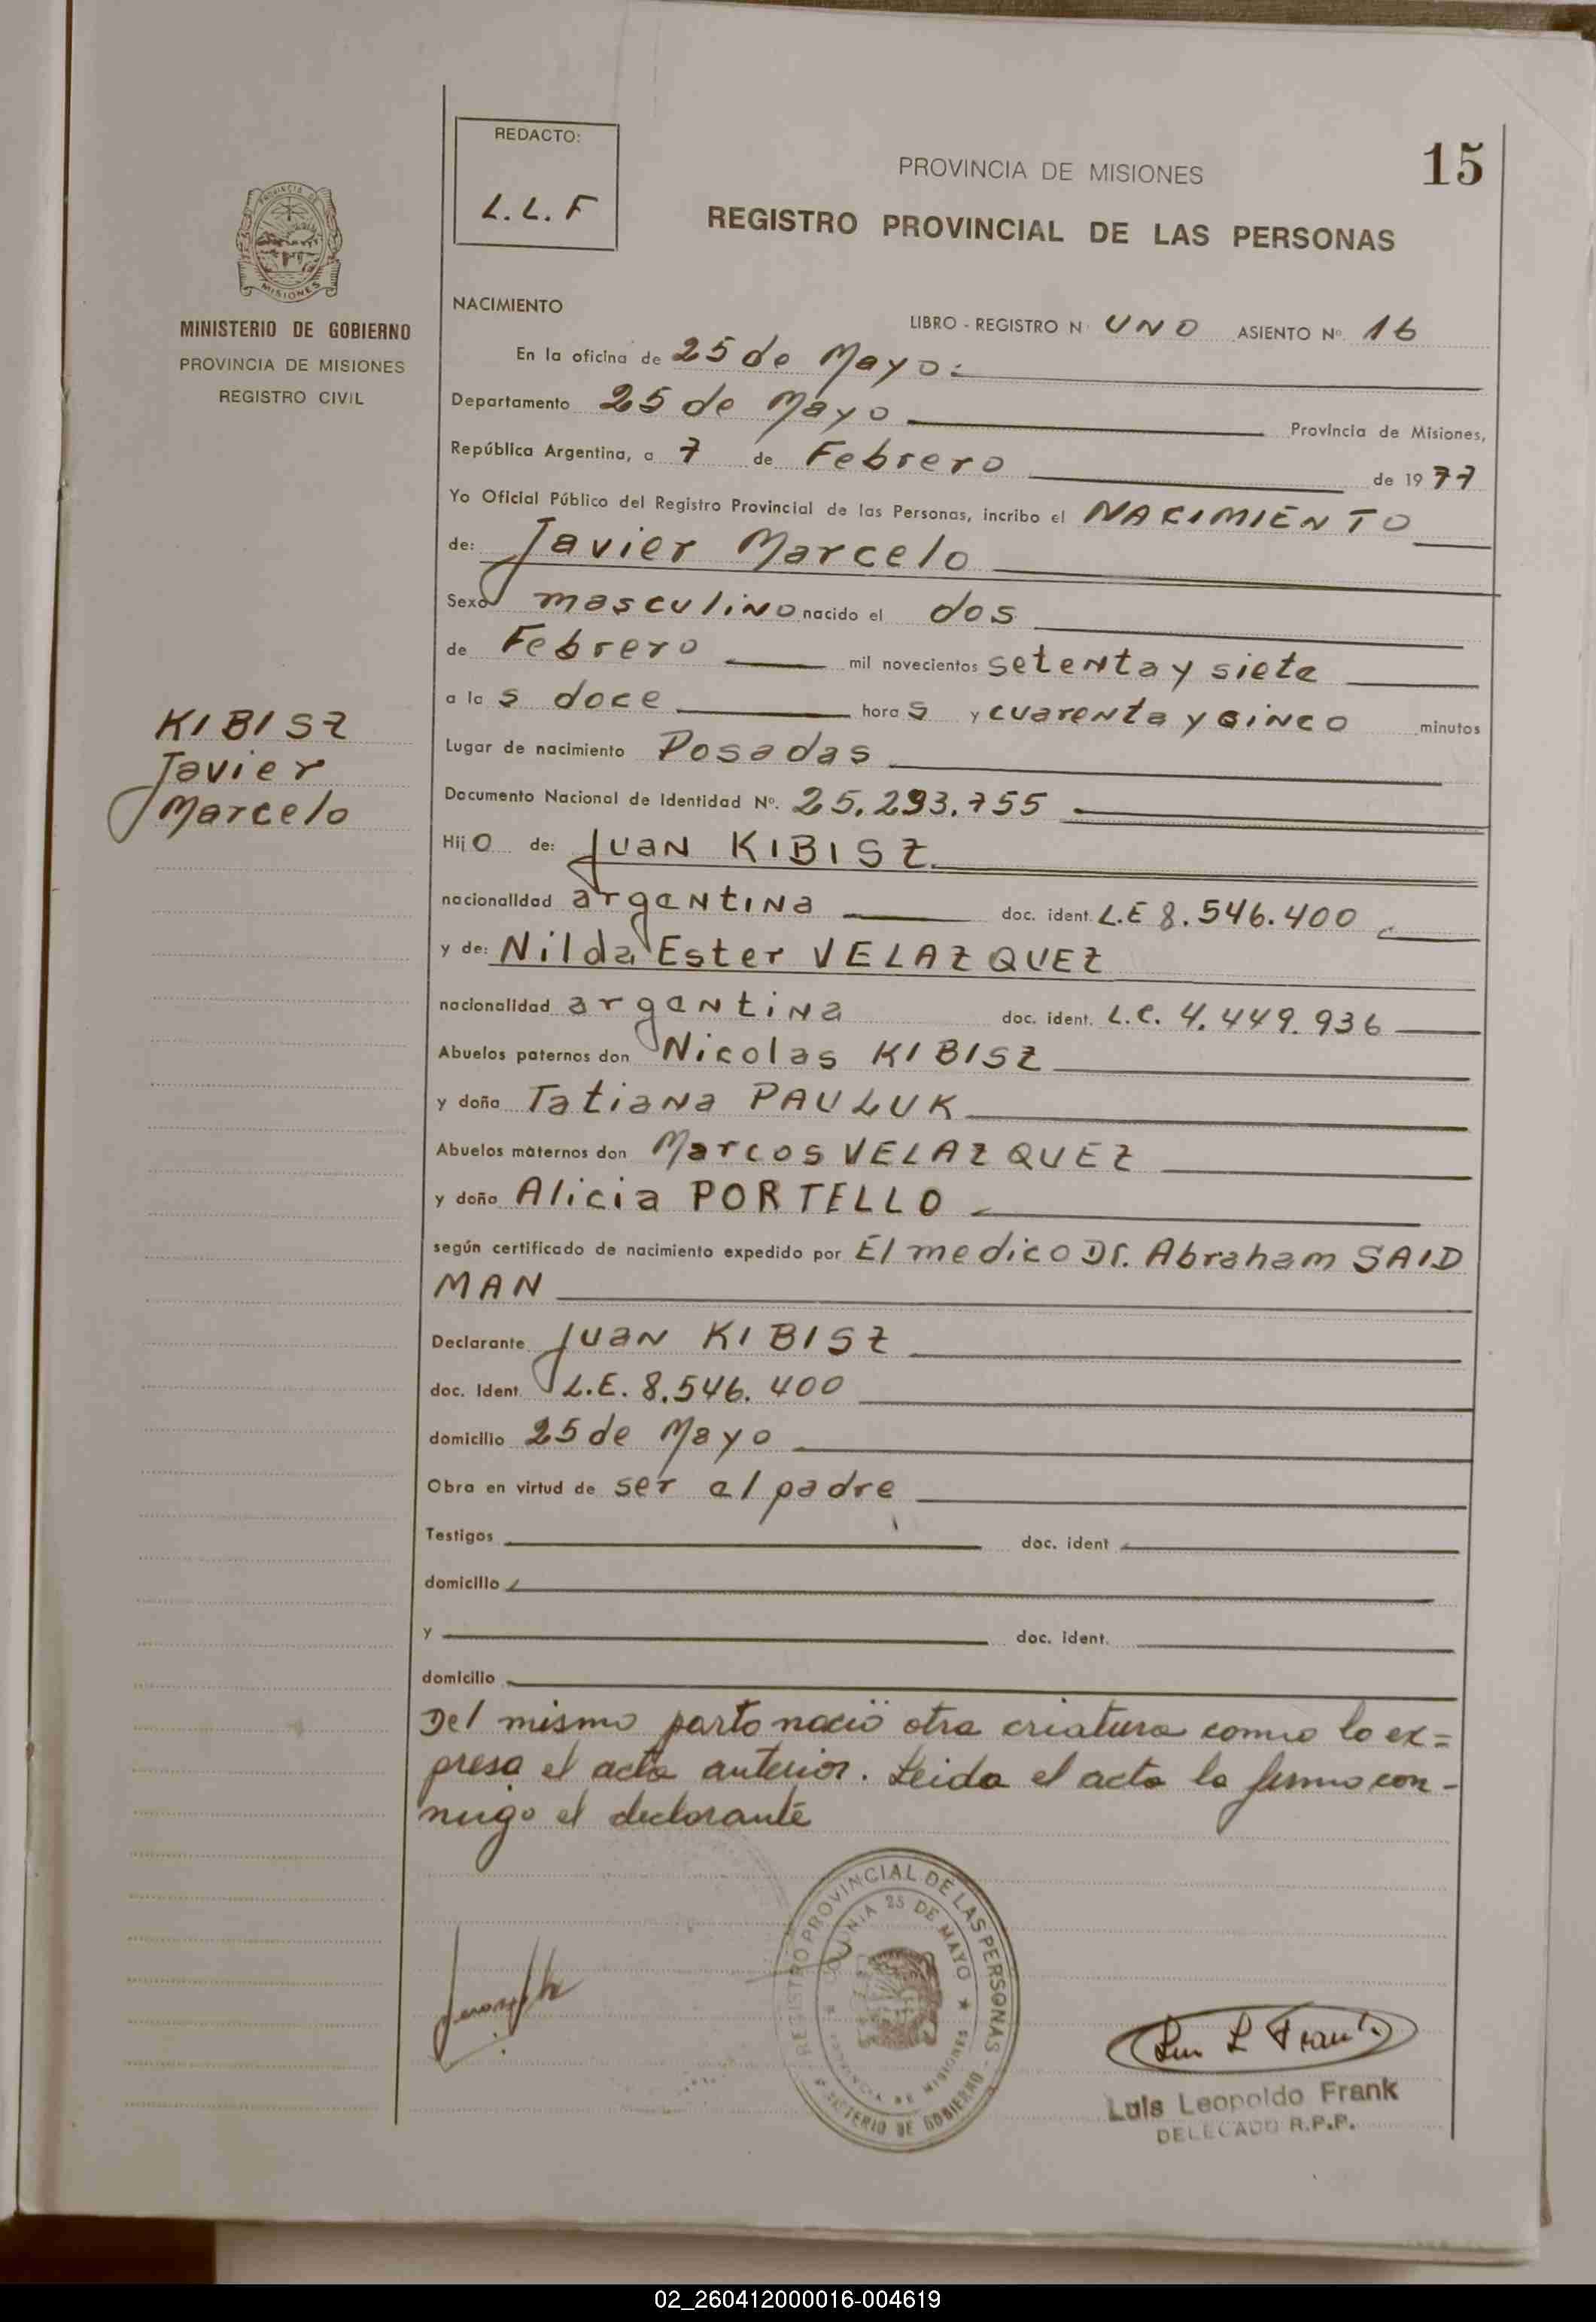 REDACTO:
L.L.F
15
PROVINCIA DE MISIONES
REGISTRO PROVINCIAL DE LAS PERSONAS
PROVINCIA DE
MISIONES
MINISTERIO DE GOBIERNO
PROVINCIA DE MISIONES
REGISTRO CIVIL
NACIMIENTO
LIBRO - REGISTRO N UNO ASIENTO Nº. 16
En la oficina de 25 de Mayo:
Departamento 25 de Mayo Provincia de Misiones,
República Argentina, a 7 de Febrero de 1977
Yo Oficial Público del Registro Provincial de las Personas, incribo el NACIMIENTO
de: Javier Marcelo
Sexo masculino nacido el dos
de Febrero mil novecientos setenta y siete
a las doce horas y cuarenta y cinco minutos
Lugar de nacimiento Posadas
Documento Nacional de Identidad Nº. 25.293.755
KIBISZ
Javier
Marcelo
Hijo de: Juan KIBISZ
nacionalidad argentina doc. ident. L.E 8.546.400
y de: Nilda Ester VELAZQUEZ
nacionalidad argentina doc. ident. L.C. 4.449.936
Abuelos paternos don Nicolas KIBISZ
y doña Tatiana PAULUK
Abuelos maternos don Marcos VELAZQUEZ
y doña Alicia PORTELLO
según certificado de nacimiento expedido por El medico Dr. Abraham SAID
MAN
Declarante Juan KIBISZ
doc. Ident. L.E. 8.546.400
domicilio 25 de Mayo
Obra en virtud de ser el padre
Testigos doc. ident
domicilio
y doc. ident.
domicilio
Del mismo parto nació otra criatura como lo ex=
presa el acta anterior. Leida el acta la firma con-
migo el declarante
REGISTRO PROVINCIAL DE LAS PERSONAS
COLONIA 25 DE MAYO
PROVINCIA DE MISIONES
MINISTERIO DE GOBIERNO
Luis L Frank
Luis Leopoldo Frank
DELEGADO R.P.P.
02_260412000016-004619